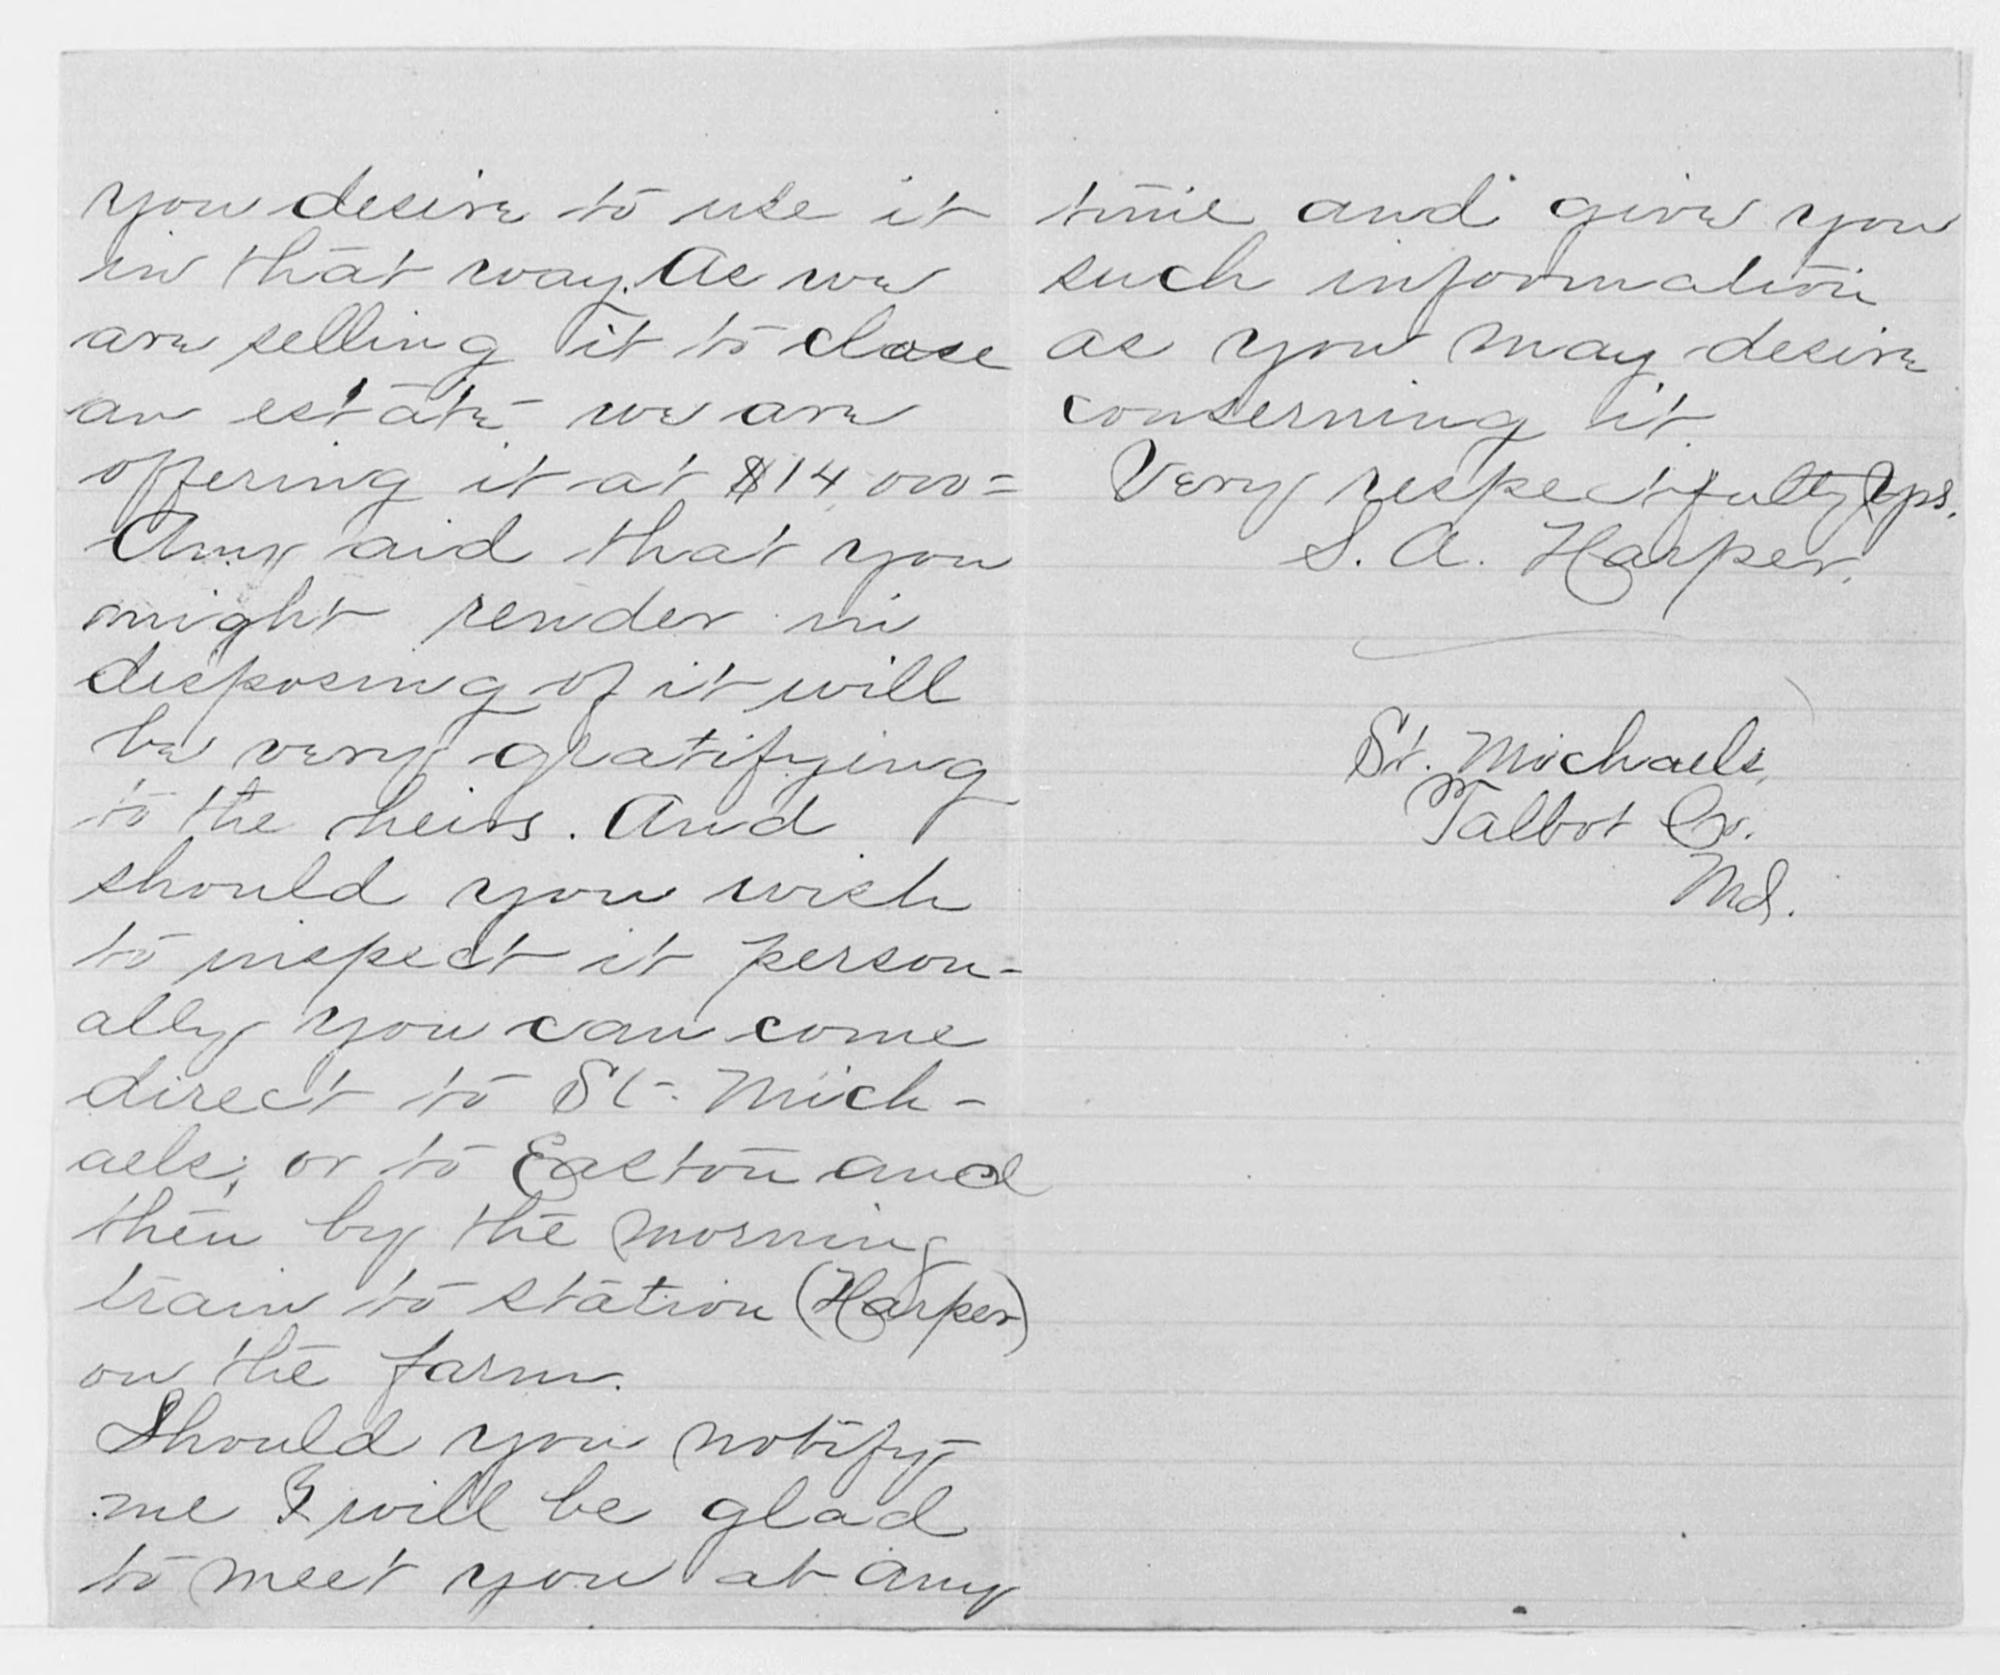 you desire to use it
in that way. As we
are selling it to close
an estate we are
offering it at $14,000=
Any aid that you
might render in
disposing of it will
be very gratifying
to the heirs. And
should you wish
to inspect it person-
ally you can come
direct to St. Mich-
aels, or to Easton and
then by the morning
train to station (Harper)
on the farm.
Should you notify
me I will be glad
to meet you at any
time and give you
such information
as you may desire
conserning it.
Very respectfully Yrs.
S. A. Harper.
St. Michaels,
Talbot Co.
Md.